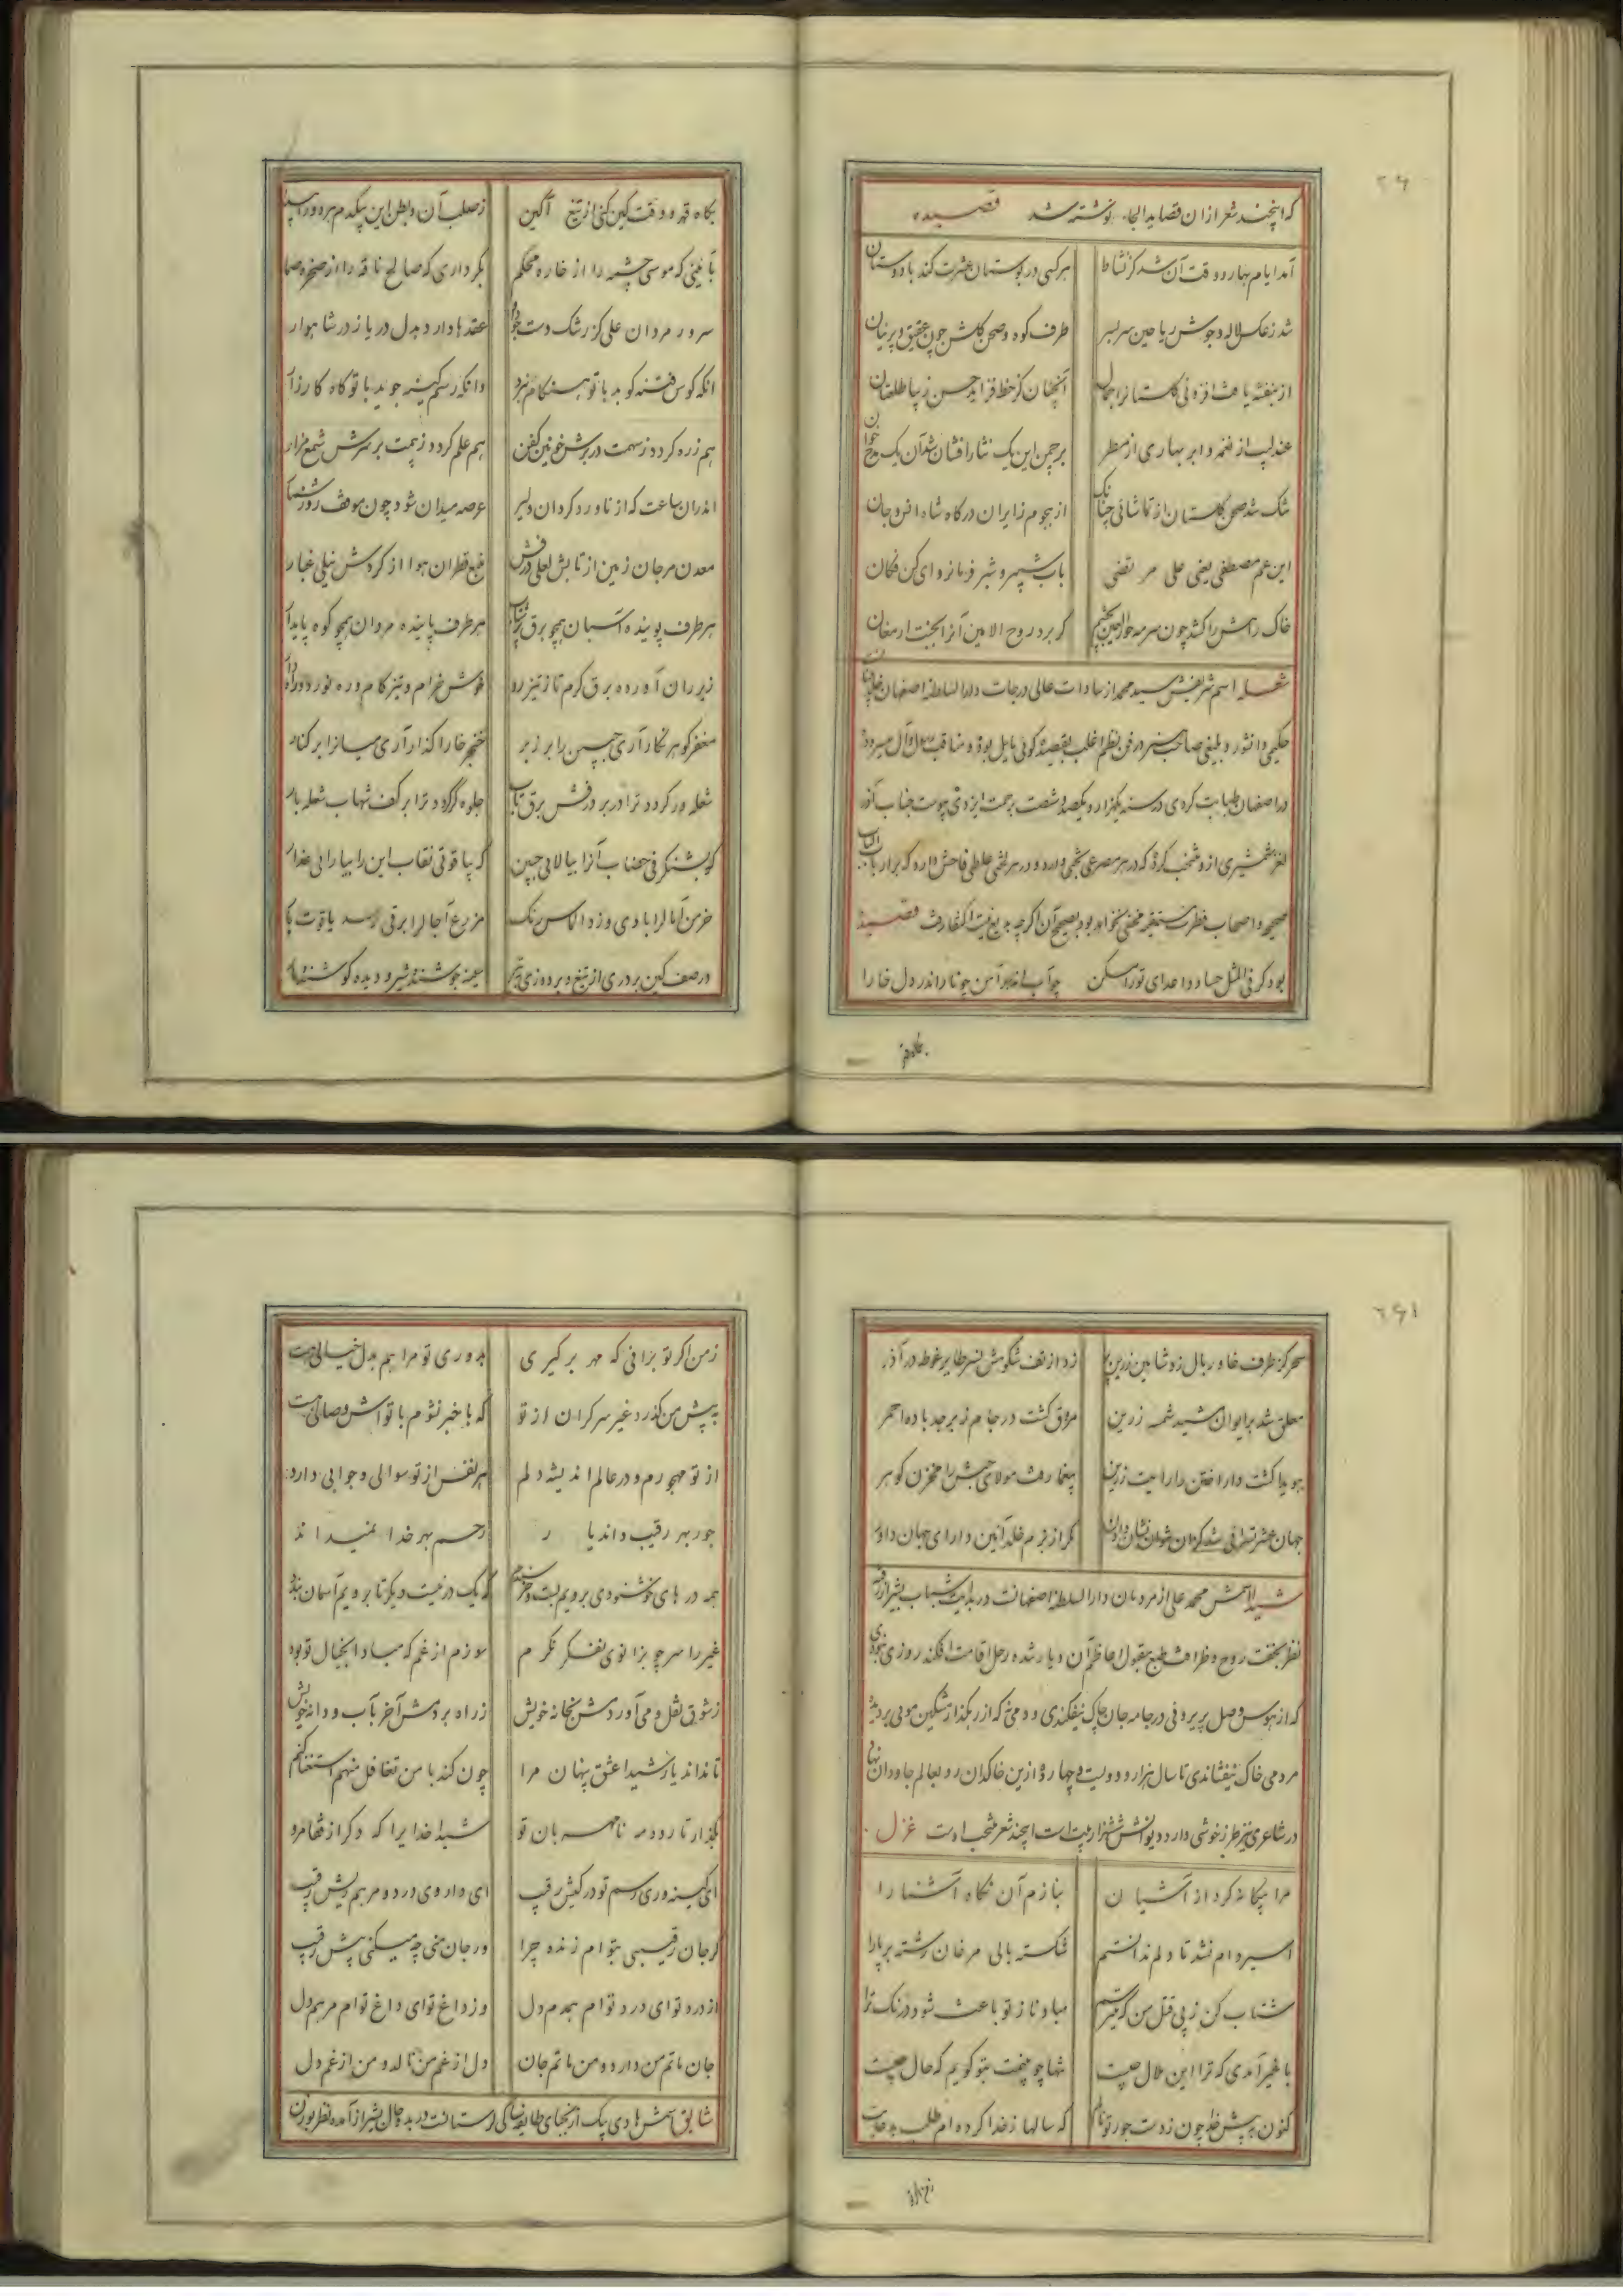 که اینچند شعر از ان قصاید الجاء نوشته شد قصیده
آمد ایام بهار و وقت آن شد کز نشاط هر کسی در بوستان عشرت کند با دوستان
شد ز عکس لاله و جوش ریاحین سربسر طرف کوه و صحن گلشن چون عقیق و پرنیان
از بنفشه یافت افزونی گلستانرا جمال آنچنان کز خط فزاید حسن زیبا طلعتان
عندلیب از نغمه و ابر بهاری از مطر بر چمن این یک نثار افشان شد آن یک مدح خوان
تنگ شد صحن گلستان از تماشائی چنانک از هجوم زایران درگاه شاه انس و جان
ابن عم مصطفی یعنی علی مرتضی باب شبیر و شبر فرمانروای کن فکان
خاک راهش را کشد چون سرمه حورالعین بچشم گر برد روح الامین آنرا بجنت ارمغان
شعله اسم شریفش سید محمد از سادات عالی درجات دارالسلطنه اصفهان
حکیمی دانشور و بلیغی صاحب هنر در فن نظم اغلب بقصیده گوئی مایل بوده و مناقب
در اصفهان طبابت کردی در سنه یکهزار و یکصد و شصت برحمت ایزدی پیوست جناب آذر
لغز شمشیری ازو منتخب کرده که در هر مصرعی و در هر لختی غلطی فاحش دارد که بر ارباب
صحیحه و اصحاب فطرت مستقیمه مخفی نخواهد بود بصحیح آن اگرچه بود اکتفا رفت قصیده
بود گر فی المثل حساد و اعدای تو را مسکن چو آب اندر آهن چو نار اندر دل خارا
بگاه قهر و وقت کین کنی از تیغ آگین ز صلب آن و بطن این بیکدم
بآئینی که موسی چشمه را از خاره محکم بکرداری که صالح ناقه را از صخره صما
سرور مردان علی کز رشک دست جود او عقدها دارد بدل دریا ز در شاهوار
انکه کوس فتنه کوبد با تو هنگام نبرد وانکه رسم کینه جوید با تو گاه کارزار
هم زره گردد ز سهمت در برش خونین کفن هم علم گردد ز بیمت بر سرش شمع مزار
اندران ساعت که از ناورد گردان دلیر عرصه میدان شود چون موقف روز شمار
معدن مرجان زمین از تابش لعلی درفش منبع قطران هوا از گردش نیلی غبار
هر طرف پوینده اسبان همچو برق پرشتاب هر طرف پاینده مردان همچو کوه پایدار
زیر ران آورده برق گرم تاز تیزرو خوش خرام و تیز گام و ره نورد و راهدار
مغفر گوهر نگار آری جبین را بر زبر خنجر خارا گذار آری میانرا بر کنار
شعله ور گردد ترا در بر درفش برق تاب جلوه گر گردد ترا بر کف شهاب شعله بار
کو بشنگرفی خضاب آنرا بیالایی جبین که بیاقوتی نقاب این را بیارایی عذار
خرمن آنها را بادی وزد الماس رنگ مزرع آجال را برقی رسد یاقوت بار
در صف کین بردری از تیغ و بر دوزی به تیر سینه جوشنده شیر و دیده
سحر کز طرف خاور بال زد شاهین زرین پر زد از تف شکوهش نسر طایر غوطه در آذر
معلق شد بر ایوان شید شمسه زرین مروق گشت در جام زبرجد باده احمر
هویدا گشت دارا ختن را رایت زرین بیغما رفت مولای حبش را مخزن گوهر
جهان عشرتسرائی شد مگر از بزم خلد آئین دارای جهان داور
شیدا اسمش محمد علی از مردمان دارالسلطنه اصفهانست در بدایت شباب بشیراز رفته
نظر بخفت روح و ظرافت طبع مقبول اعاظم آن دیار شده رحل اقامت افکند روزی نبودی
که از هوس وصل پریروئی در جامه جان چاک نیفکندی و دمی نه که از رهگذار مشکین موئی بر دیده
مردمی خاک نیفشاندی تا سال هزار و دویست و چهارده ازین خاکدان رو بعالم جاودان نهاد
در شاعری نیز طرز خوشی دارد دیوانش ششهزار بیت است اینچند شعر منتخب اوست غزل
مرا بیگانه کرد از آشنایان بنازم آن نگاه آشنا را
اسیر دام نشد تا دلم ندانستم شکسته بالی مرغان رشته بر پا را
شتاب کن ز پی قتل من که میترسم مباد ناز تو باعث شود درنگ ترا
با غیر آمدی که ترا این ملال چیست تنها چو بینمت بتو گویم که حال چیست
کنون به پیش خدا چون ز دست جور تو نالم که سالها ز خدا کرده ام طلب بدعایت
ز من اگر تو بر آنی که مهر برگیری بدوری تو مرا هم بدل خیالی هست
به پیش من گذرد غیر سرگران از تو که با خبر نشوم با تواش وصالی هست
از تو مهجورم و در عالم اندیشه دلم هر نفس از تو سوالی و جوابی دارد
جور بهر رقیب داند یار رحم بهر خدا نمیداند
همه درهای خوشنودی برویم بست و خرسندم که یک در نیست دیگر تا برویم آسمان بندد
غیر را سر چو بزانوی تفکر نگرم سوزم از غم که مبادا بخیال تو بود
ز شوق نقل و می آوردمش بخانه خویش ز راه بردمش آخر بآب و دانه خویش
تا نداند یار شیدا عشق پنهان مرا چون کند با من تغافل منهم استغنا کنم
بگذار تا رود مه نامهربان تو شیدا خدایرا که دگر از قفا مرو
ای کینه وری رسم تو در کیش رقیب ای داروی درد و مرهم ریش رقیب
گر جان رقیبی بتوام زنده چرا ور جان منی چه میکنی پیش رقیب
از درد تو ای درد توام همدم دل وز داغ تو ای داغ توام مرهم دل
جان ماتم من دارد و من ماتم جان دل از غم من نالد و من از غم دل
شایق اسمش هادی بیک از نجبای طایفه در بدو حال بشیراز آمده نظر بوزن